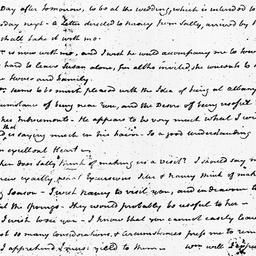 Day after tomorrow, to be at the wedding, which is intended to
day next - a Letter directed to Nancy from Sally, arrived by
shall take it with me.
is now with me, and I wish he would accompany me to
hard to leave Susan alone, for altho invited, she consents to
Horse and family.
seems to be most pleased with the Idea of being at Albany
circumstance of being near you, and the Desire of being useful to
her Inducements. He appears to be very much what I wish
that is saying much in his favor. So a good understanding
excellent Heart
when does Sally think of making us a visit? I should say
now exactly, what Excursion She & Nancy think of
Season - I wish Nancy to visit you, and endeavour to
the Springs - They would probably be useful to her -
I wish to see you - I know that you cannot easily leave
so many considerations, & circumstances press me to
I apprehend I must yield to them - Wm. will